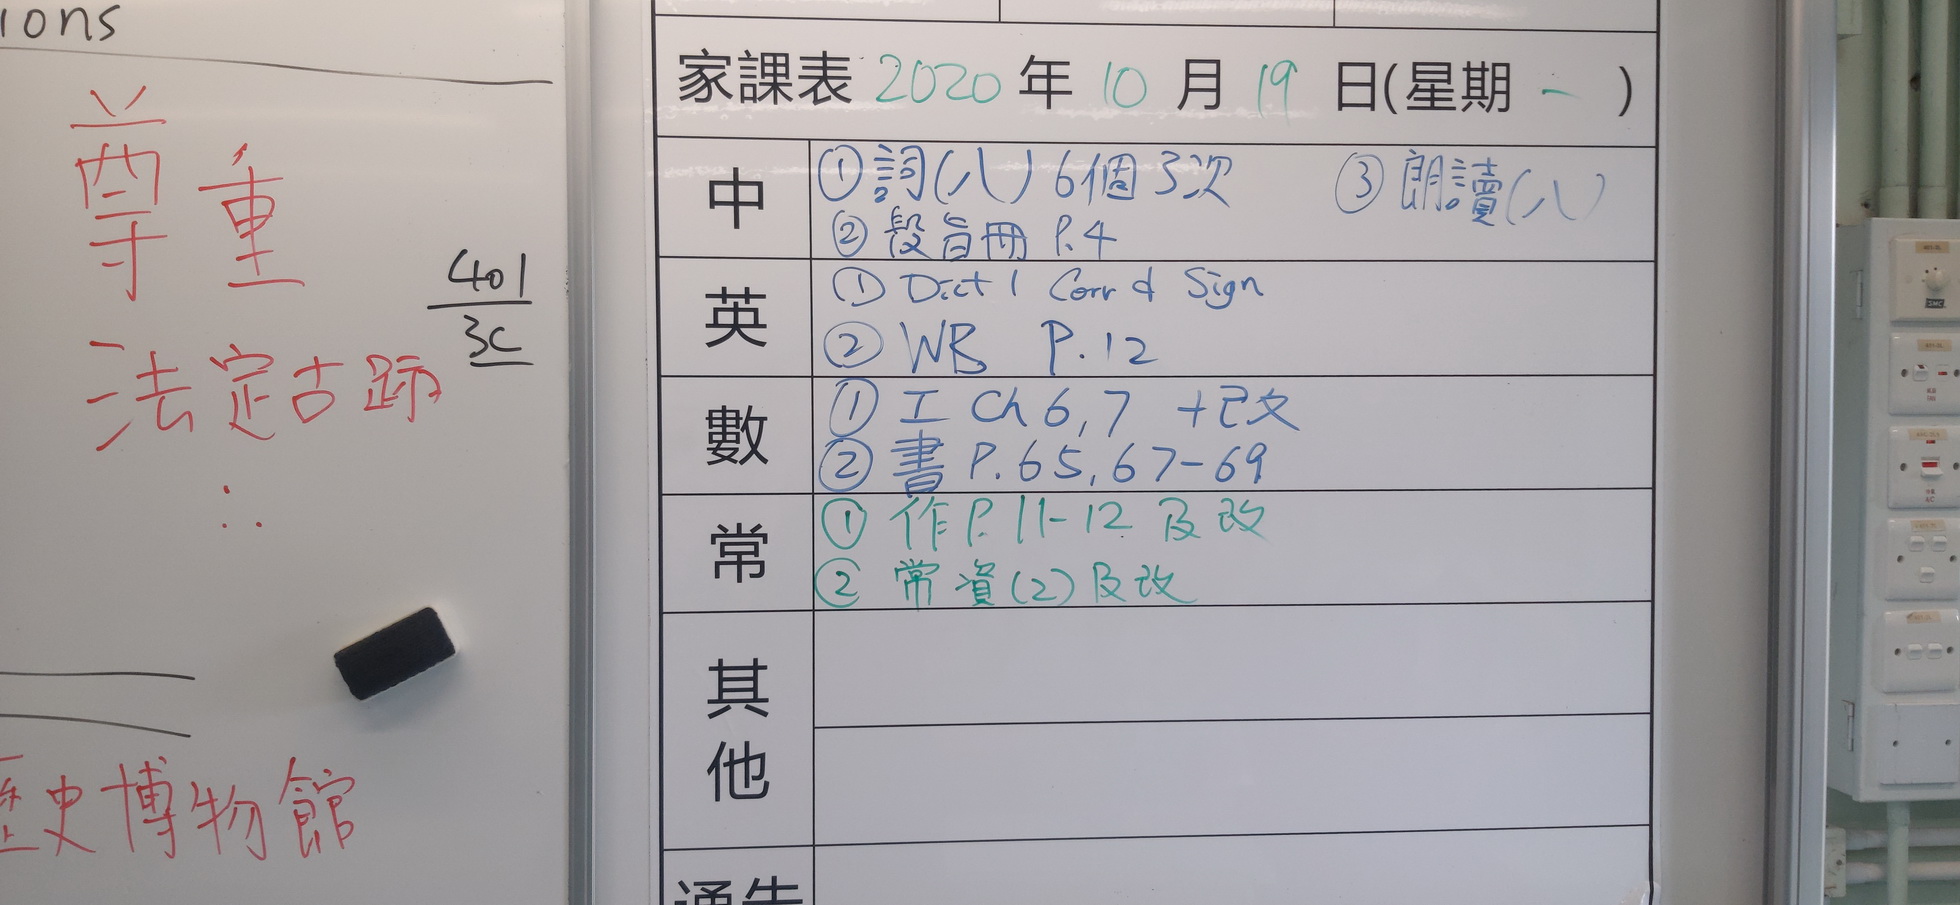 ions
尊重
401
3C
法定古蹟
史博物館
家課表 2020 年 10 月 19 日(星期 一 )
中
① 詞(八) 6個3次 ③ 朗讀(八)
② 段旨冊 P.4
英
① Dict 1 Corr & Sign
② WB P.12
數
① 工 Ch 6,7 +已改
② 書 P.65,67-69
常
① 作P.11-12 及改
② 常資(2)及改
其他
通告